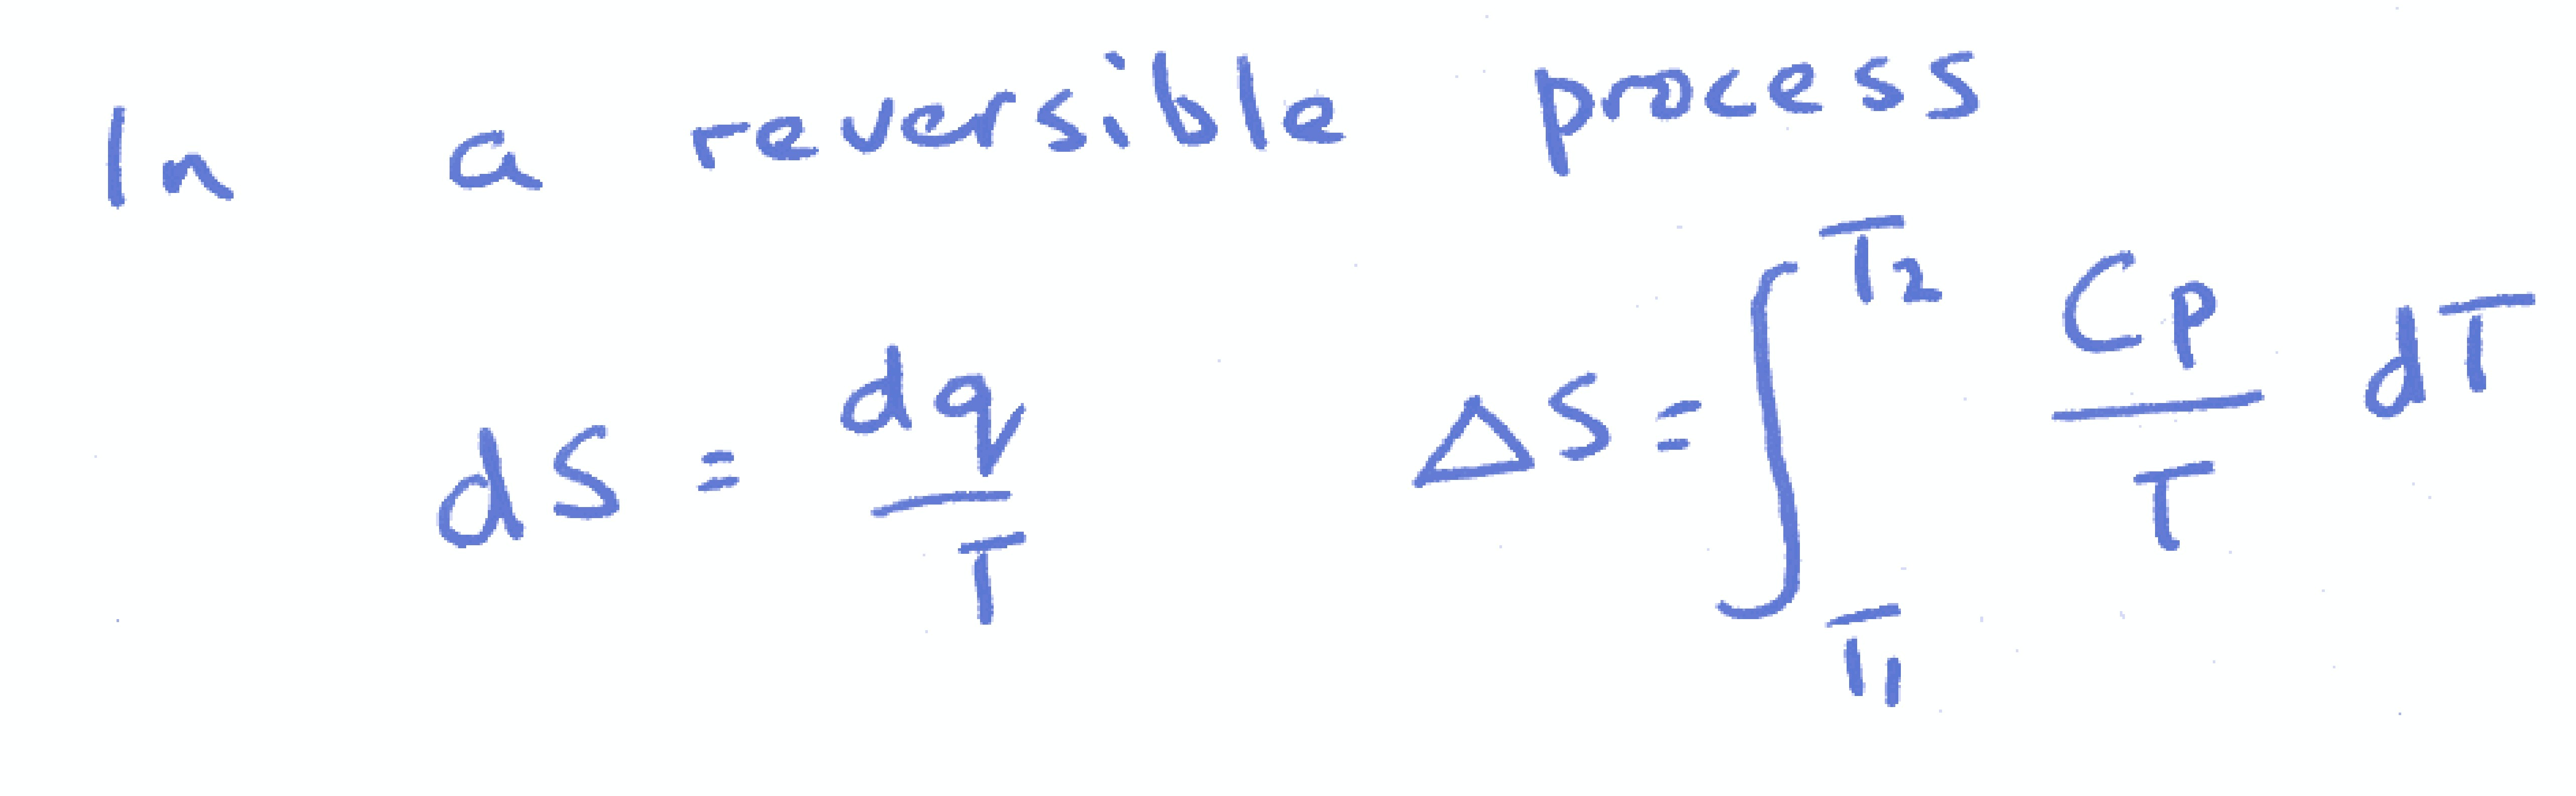 In a reversible process
dS = dq/T    ΔS = ∫_{T₁}^{T₂} Cp/T dT